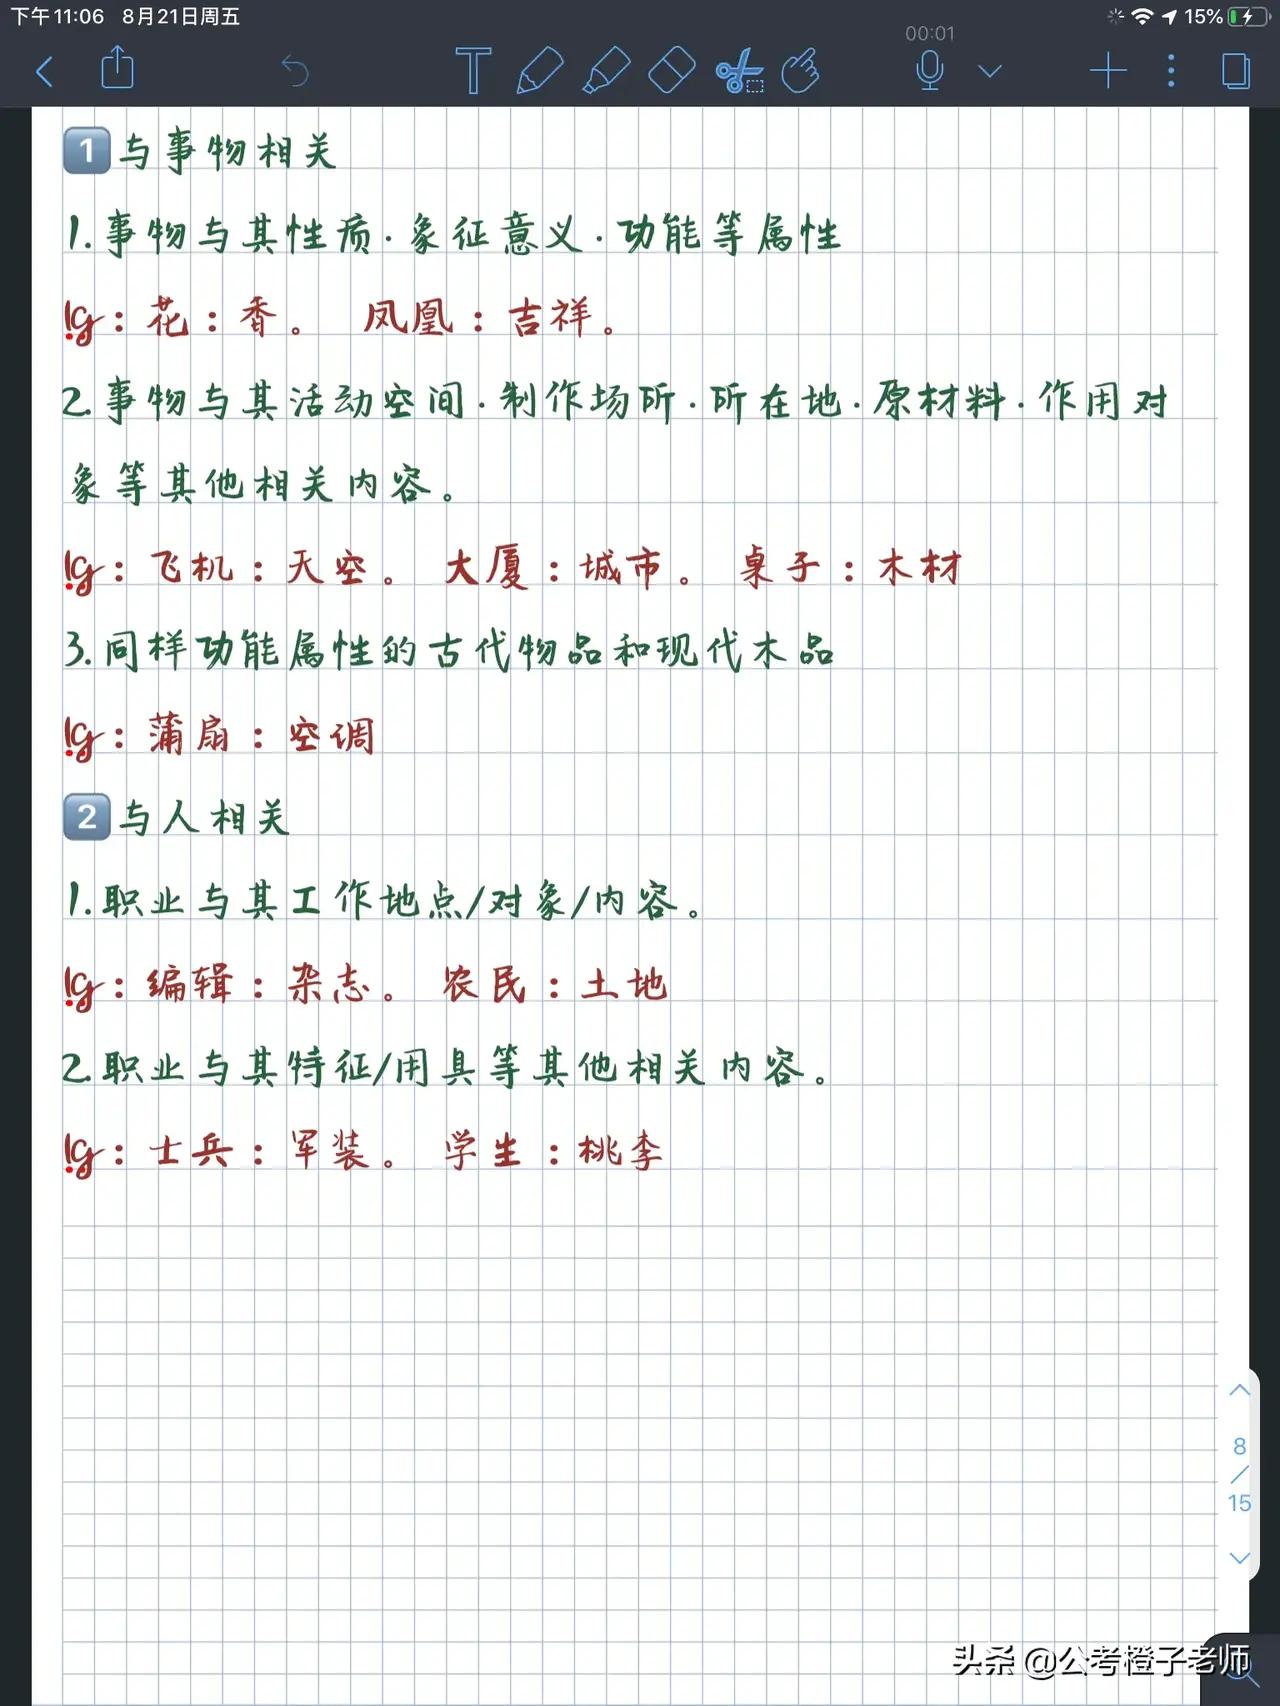 下午11:06 8月21日周五
15%
00:01
1 与事物相关
1.事物与其性质·象征意义·功能等属性
lg：花：香。 凤凰：吉祥。
2.事物与其活动空间·制作场所·所在地·原材料·作用对
象等其他相关内容。
lg：飞机：天空。 大厦：城市。 桌子：木材
3.同样功能属性的古代物品和现代木品
lg：蒲扇：空调
2 与人相关
1.职业与其工作地点/对象/内容。
lg：编辑：杂志。 农民：土地
2.职业与其特征/用具等其他相关内容。
lg：士兵：军装。 学生：桃李
8
/
15
头条 @公考橙子老师